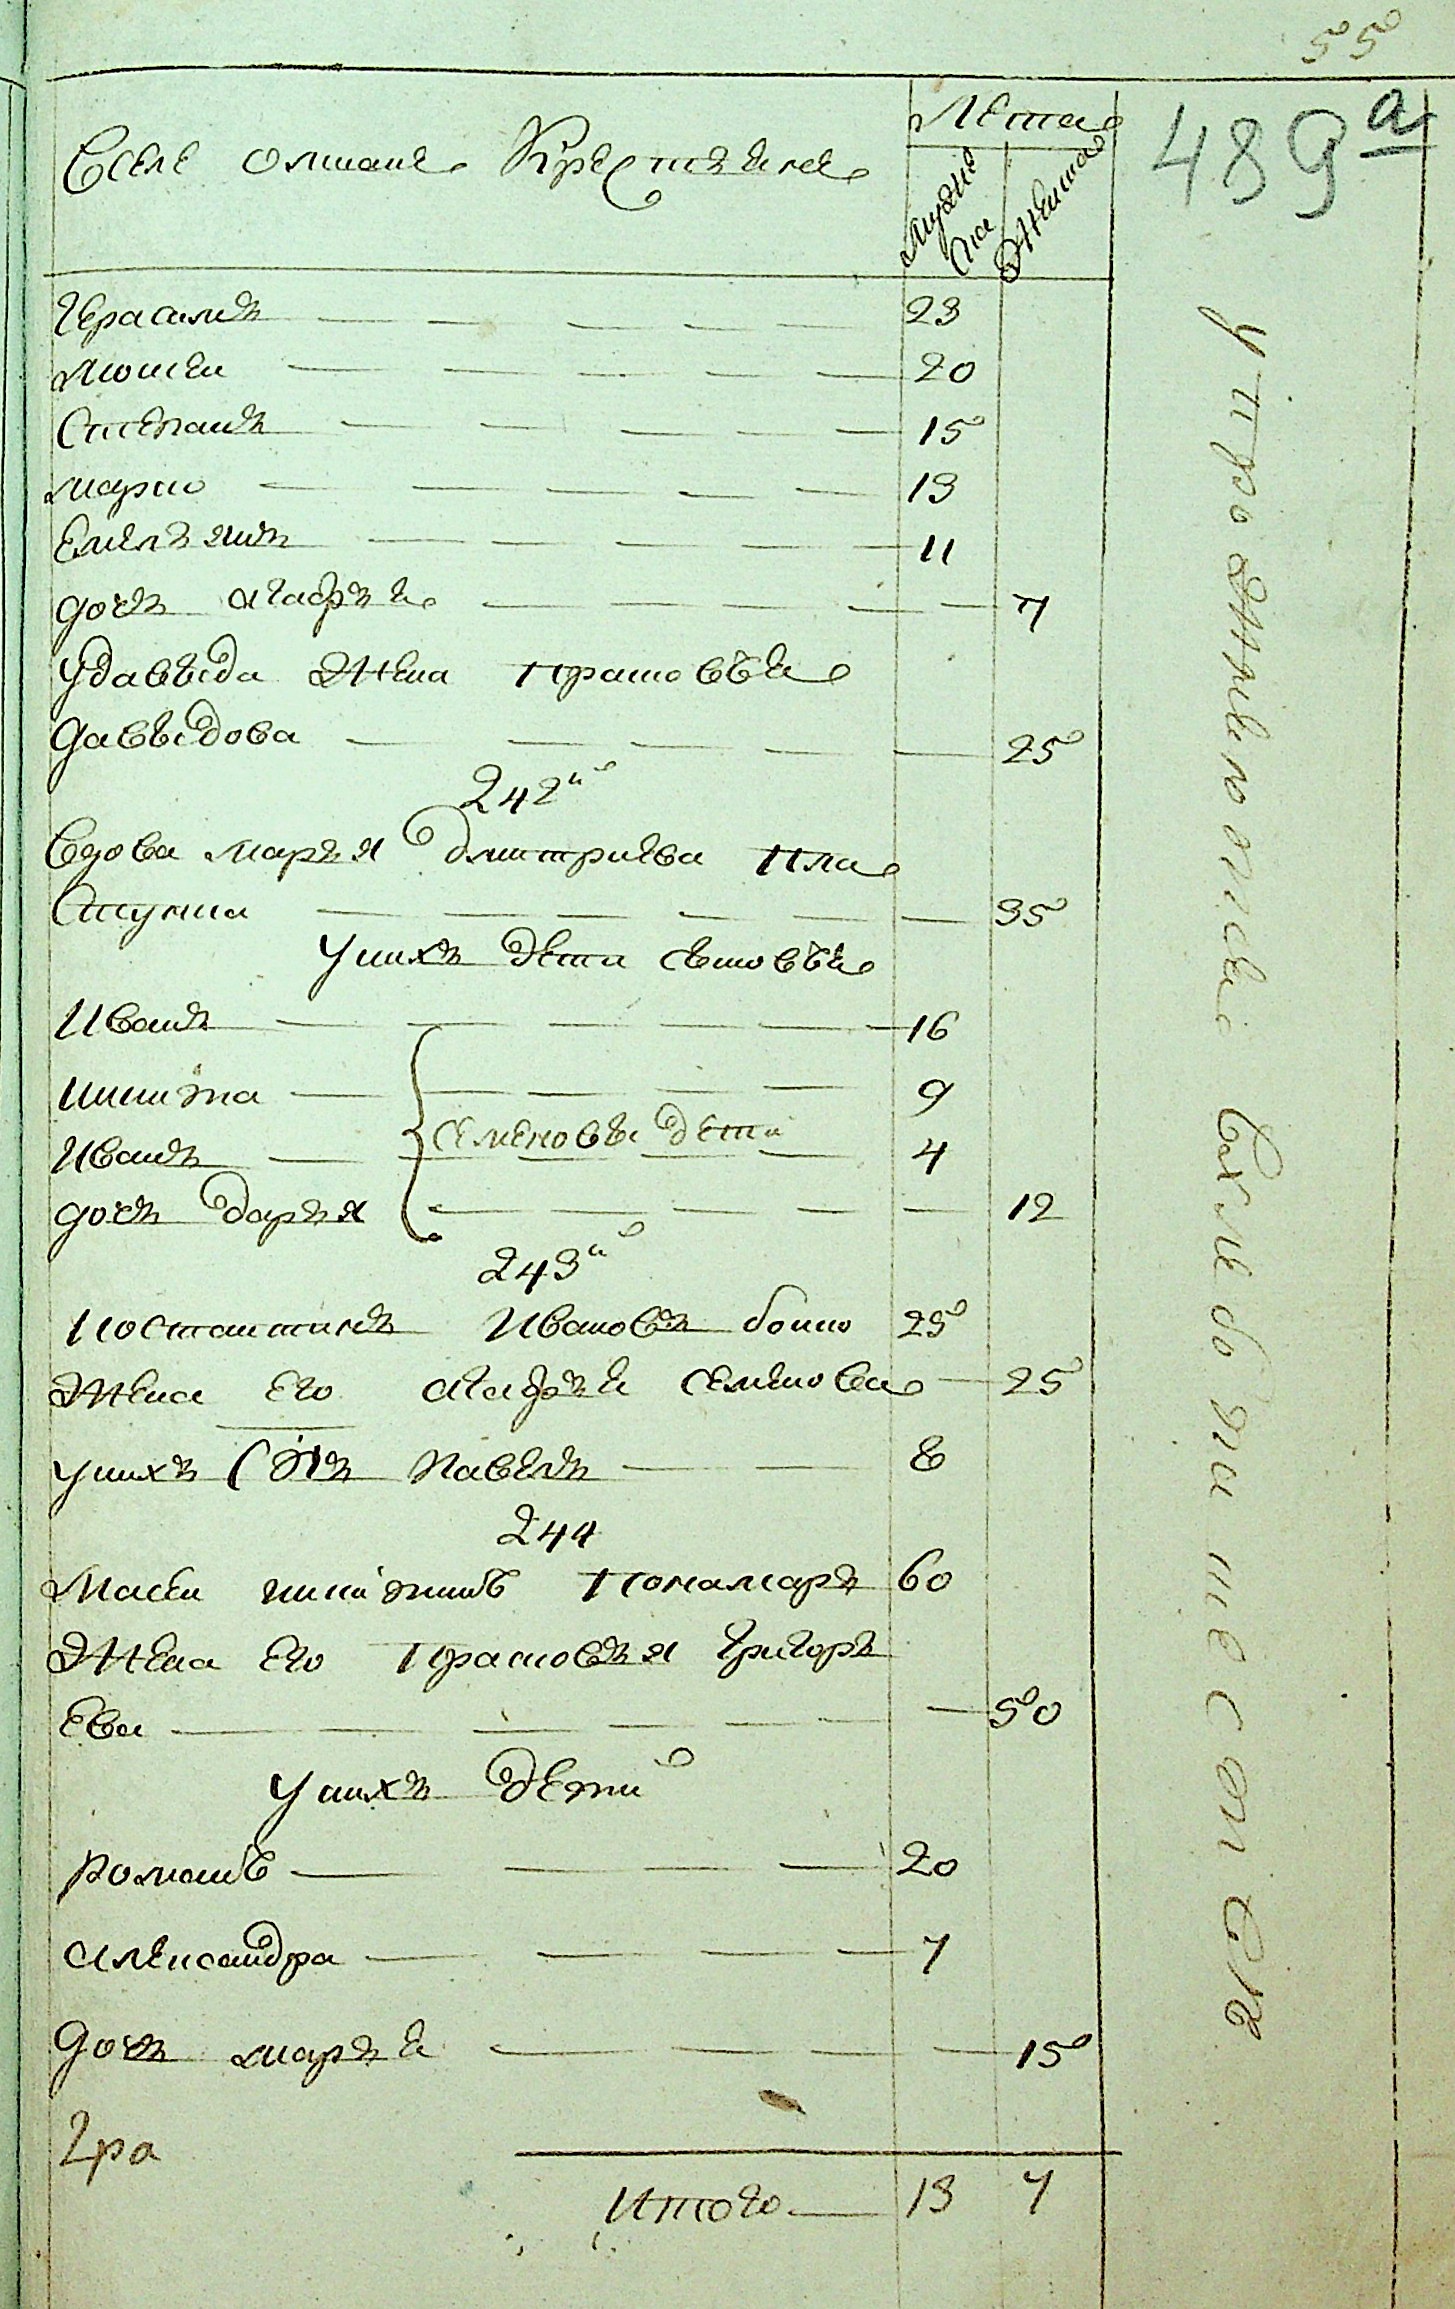 55
489а
Вселе олшане Крестяне
Лета
Мужеска
Женска
Герасимъ 23
Мосеи 20
Степанъ 15
марко 13
Емелянъ 11
дочь агафья 7
удавыда жена Прасковья
давыдова 25
242й
вдова марья дмитриева Пла
Стунка 35
унихъ дети сыновья
Иванъ 16
никита 9
Семеновы дети
Иванъ 4
дочь дарья 12
243й
Костантинъ Ивановъ боико 25
Жена его агафья семенова 25
унихъ Снъ Павелъ 8
244
Мосеи никитинъ Понамаръ 60
Жена его Прасковья Григорь
Ева 50
унихъ дети
Романъ 20
александра 7
дочь марья 15
Гра
Итого 13 7